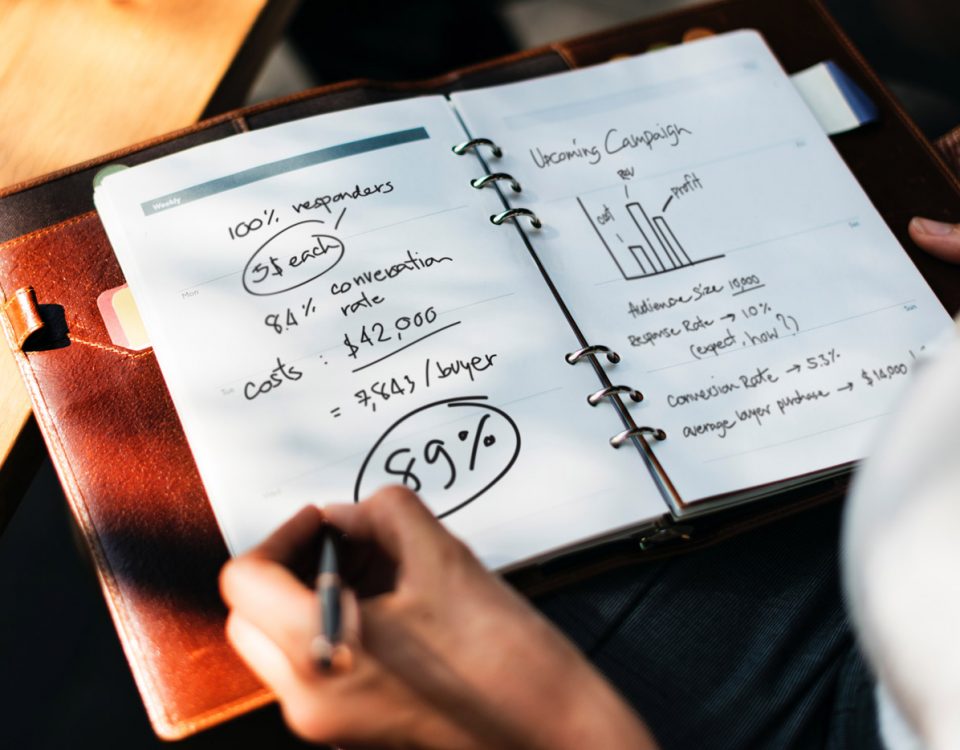 Weekly
100% responders
5$ each
Mon
8.4% conversation
rate
Tue
costs : $42,000
= 7,843 / buyer
Wed
89%
Upcoming Campaign
Rev
Cost
Profit
Fri
Sat
Audience Size 10,000
Response Rate → 10%
(expect, how?)
Sun
Conversion Rate → 5.3%
average buyer purchase → $14,000